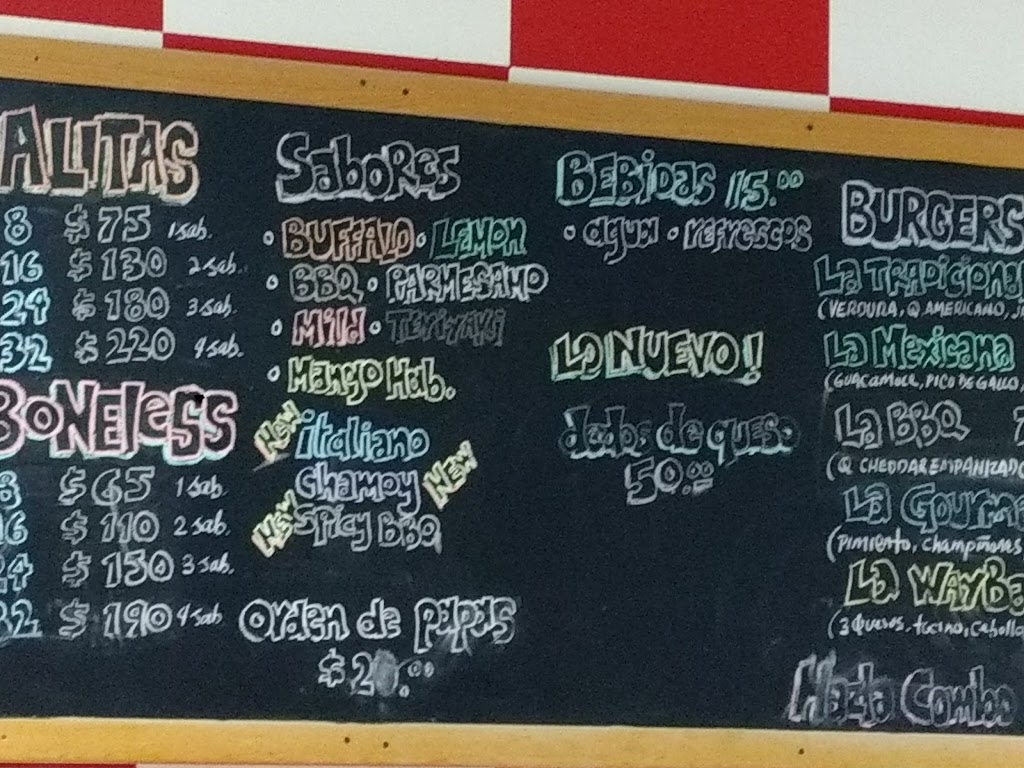 ALITAS
8 $75 1 sab.
16 $130 2 sab.
24 $180 3 sab.
32 $220 4 sab.
BONELESS
8 $65 1 sab.
16 $110 2 sab.
24 $150 3 sab.
32 $190 4 sab
SABORES
• BUFFALO • LEMON
• BBQ • PARMESANO
• Mild • TERIYAKI
• Mango Hab.
NEW italiano
Chamoy NEW
NEW SPicy BBQ
Orden de papas
$20.00
BEBIDAS 15.00
• agua • refrescos
LO NUEVO!
dedos de queso
50.00
BURGERS
La TRADICIONA
(VERDURA, Q. AMERICANO,
La Mexicana
(GUACAMOLE, PICO DE GALLO,
La BBQ
(Q. CHEDDAR EMPANIZADO
La Gourm
(PIMIENTO, champiñones
La WAYBA
(3 Quesos, tocino, Cebolla
Hazla Combo